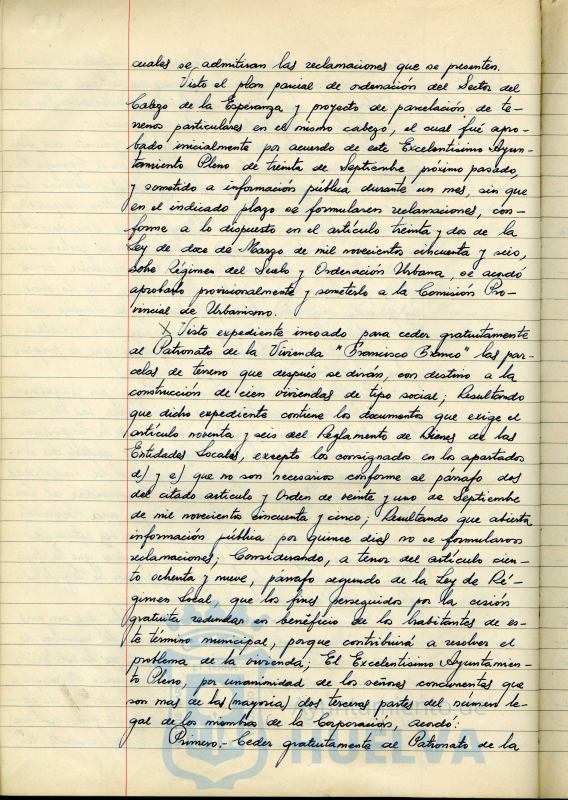 cuales se admitiran las reclamaciones que se presenten.
Visto el plan parcial de ordenación del Sector del
Cabezo de la Esperanza y proyecto de parcelación de te-
rrenos particulares en el mismo cabezo, el cual fué apro-
bado inicialmente por acuerdo de este Excelentísimo Ayun-
tamiento Pleno de treinta de Septiembre próximo pasado,
y sometido a información pública durante un mes, sin que
en el indicado plazo se formularen reclamaciones, con-
forme a lo dispuesto en el artículo treinta y dos de la
Ley de doce de Marzo de mil novecientos cincuenta y seis,
sobre Régimen del Suelo y Ordenación Urbana, se acordó
aprobarlo provisionalmente y someterlo a la Comisión Pro-
vincial de Urbanismo.
X Visto expediente incoado para ceder gratuitamente
al Patronato de la Vivienda "Francisco Franco" las par-
celas de terreno que después se dirán, con destino a la
construcción de cien viviendas de tipo social; Resultando
que dicho expediente contiene los documentos que exige el
artículo noventa y seis del Reglamento de Bienes de las
Entidades Locales, excepto los consignados en los apartados
d) y e) que no son necesarios conforme al párrafo dos
del citado artículo y Orden de veinte y uno de Septiembre
de mil novecientos cincuenta y cinco; Resultando que abierta
información pública por quince dias no se formularon
reclamaciones; Considerando, a tenor del artículo cien-
to ochenta y nueve, párrafo segundo de la Ley de Ré-
gimen Local, que los fines perseguidos por la cesión
gratuita redundan en beneficio de los habitantes de es-
te término municipal, porque contribuirá a resolver el
problema de la vivienda; El Excelentísimo Ayuntamien-
to Pleno, por unanimidad de los señores concurrentes que
son mas de las (mayoria) dos terceras partes del número le-
gal de los miembros de la Corporación, acordó:
Primero.- Ceder gratuitamente al Patronato de la
Ayuntamiento de
HUELVA